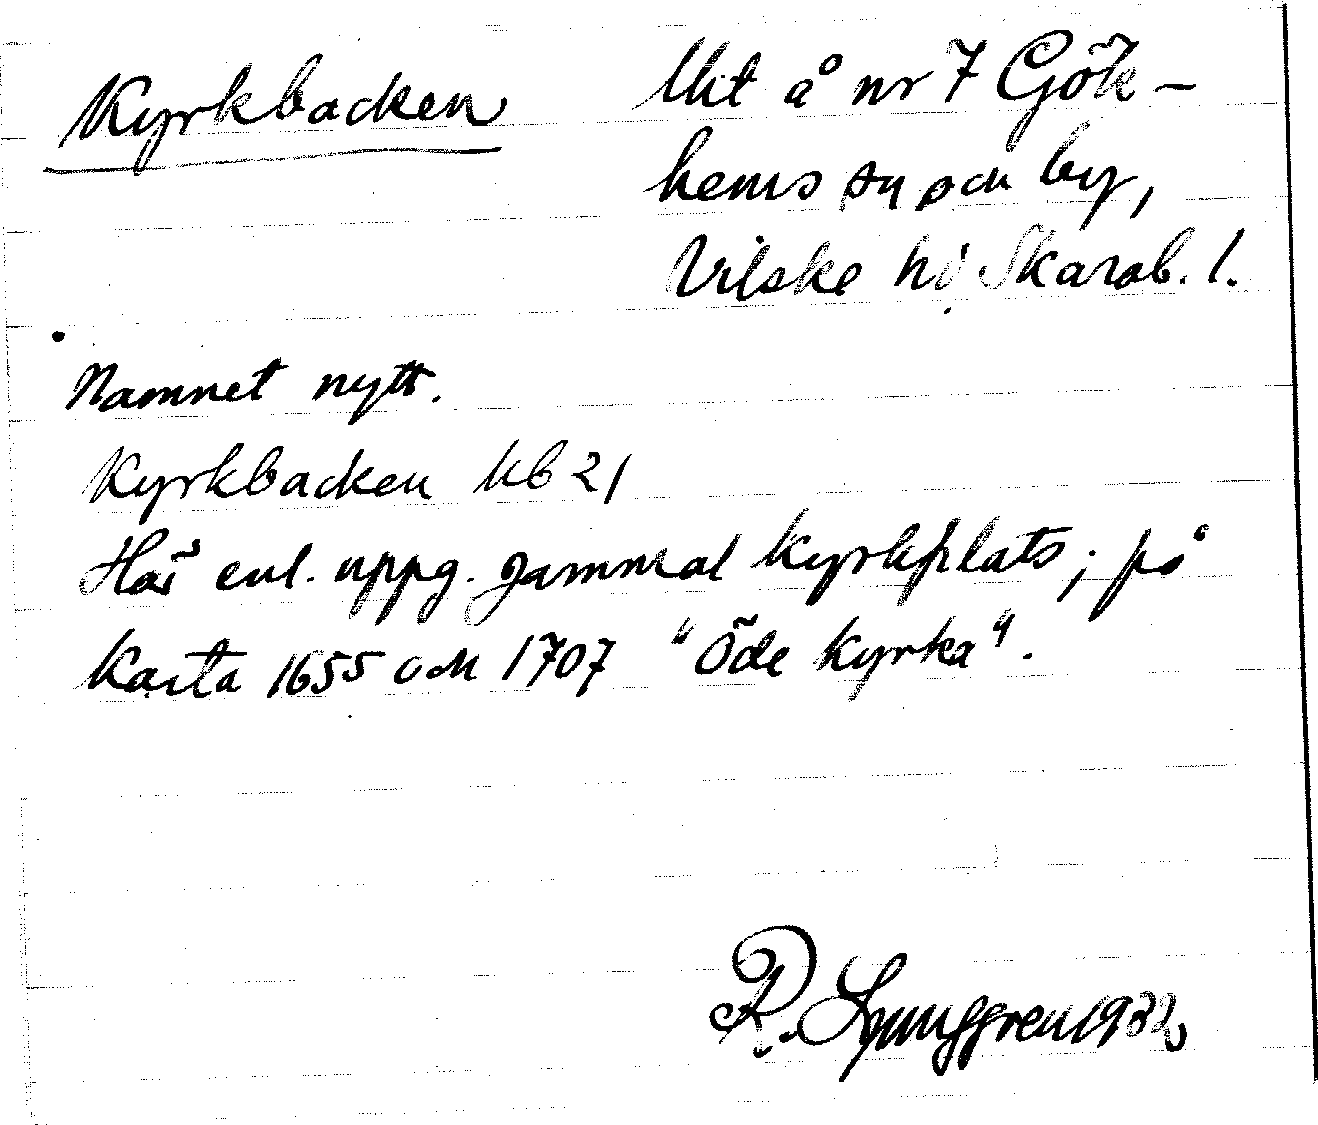 Kyrkbacken
Utt å nr 7 Gök-
hems sn och by,
Vilske hd Skarab. l.
Namnet nytt.
Kyrkbacken kb 21
Här enl. uppg. gammal kyrkplats; på
karta 1655 och 1707 "Öde kyrka".
R. Ljunggren 1932